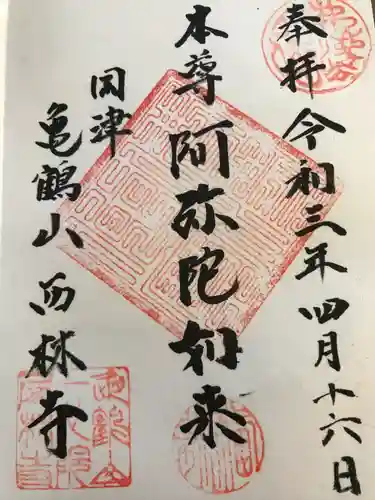 奉拝 令和三年四月十六日
本尊 阿弥陀如来
田津
亀鶴山 西林寺